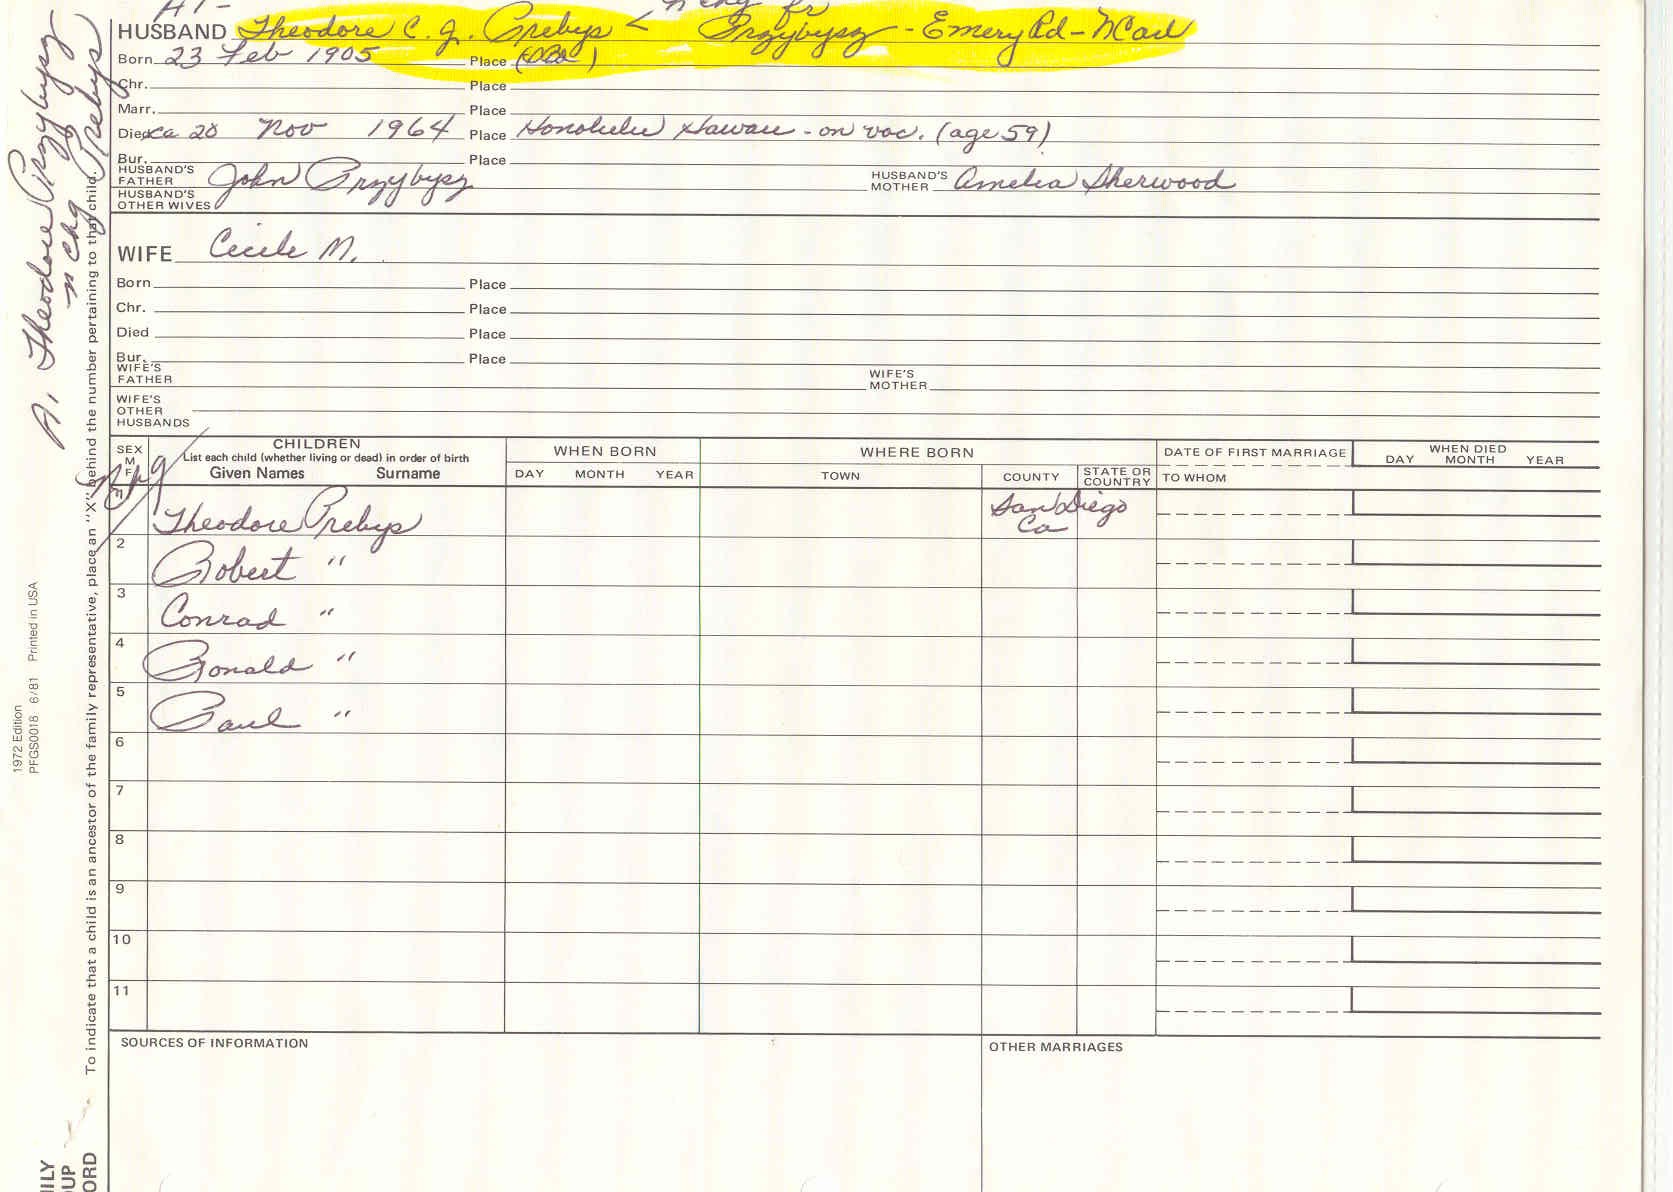 HUSBAND Theodore C. J. Prebys < n chg fr Przybysz - Emery Rd - NCarl
Born 23 Feb 1905 Place
Chr. Place
Marr. Place
Died ca 20 Nov 1964 Place Honolulu Hawaii - on vac. (age 59)
Bur. Place
HUSBAND'S FATHER John Przybysz HUSBAND'S MOTHER Amelia Sherwood
HUSBAND'S OTHER WIVES
WIFE Cecile M.
Born Place
Chr. Place
Died Place
Bur. Place
WIFE'S FATHER WIFE'S MOTHER
WIFE'S OTHER HUSBANDS
SEX M F CHILDREN WHEN BORN WHERE BORN DATE OF FIRST MARRIAGE WHEN DIED
List each child (whether living or dead) in order of birth
Given Names Surname DAY MONTH YEAR TOWN COUNTY STATE OR COUNTRY TO WHOM DAY MONTH YEAR
1 Theodore Prebys San Diego Ca
2 Robert "
3 Conrad "
4 Ronald "
5 Paul "
6
7
8
9
10
11
SOURCES OF INFORMATION OTHER MARRIAGES
A. Theodore Przybysz
n chg Prebys
To indicate that a child is an ancestor of the family representative, place an "X" behind the number pertaining to that child.
1972 Edition
PFGS0018 6/81 Printed in USA